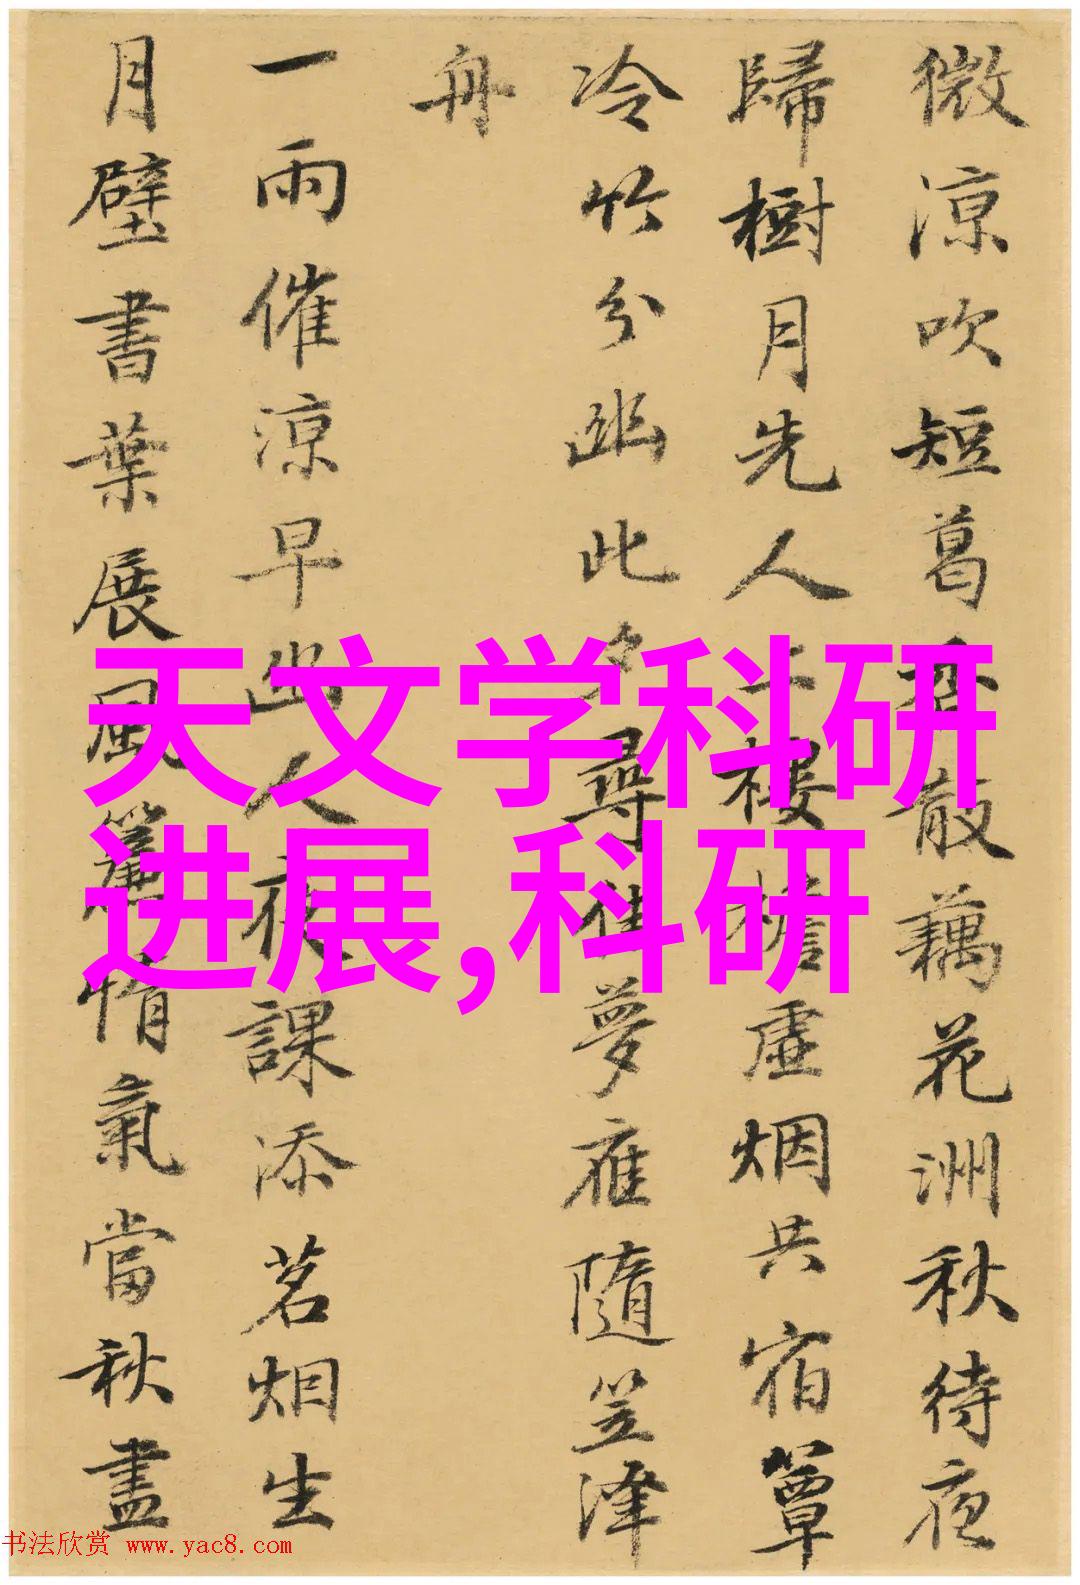 微涼吹短葛香散藕花洲秋待夜
歸樹月先人上樓檐虛烟共宿簟
冷竹分幽此夕尋佳夢應隨笠澤
舟
一雨催涼早幽人夜課添茗烟生
月壁書葉展風簾惰氣當秋盡
天文学科研
进展,科研
书法欣赏 www.yac8.com